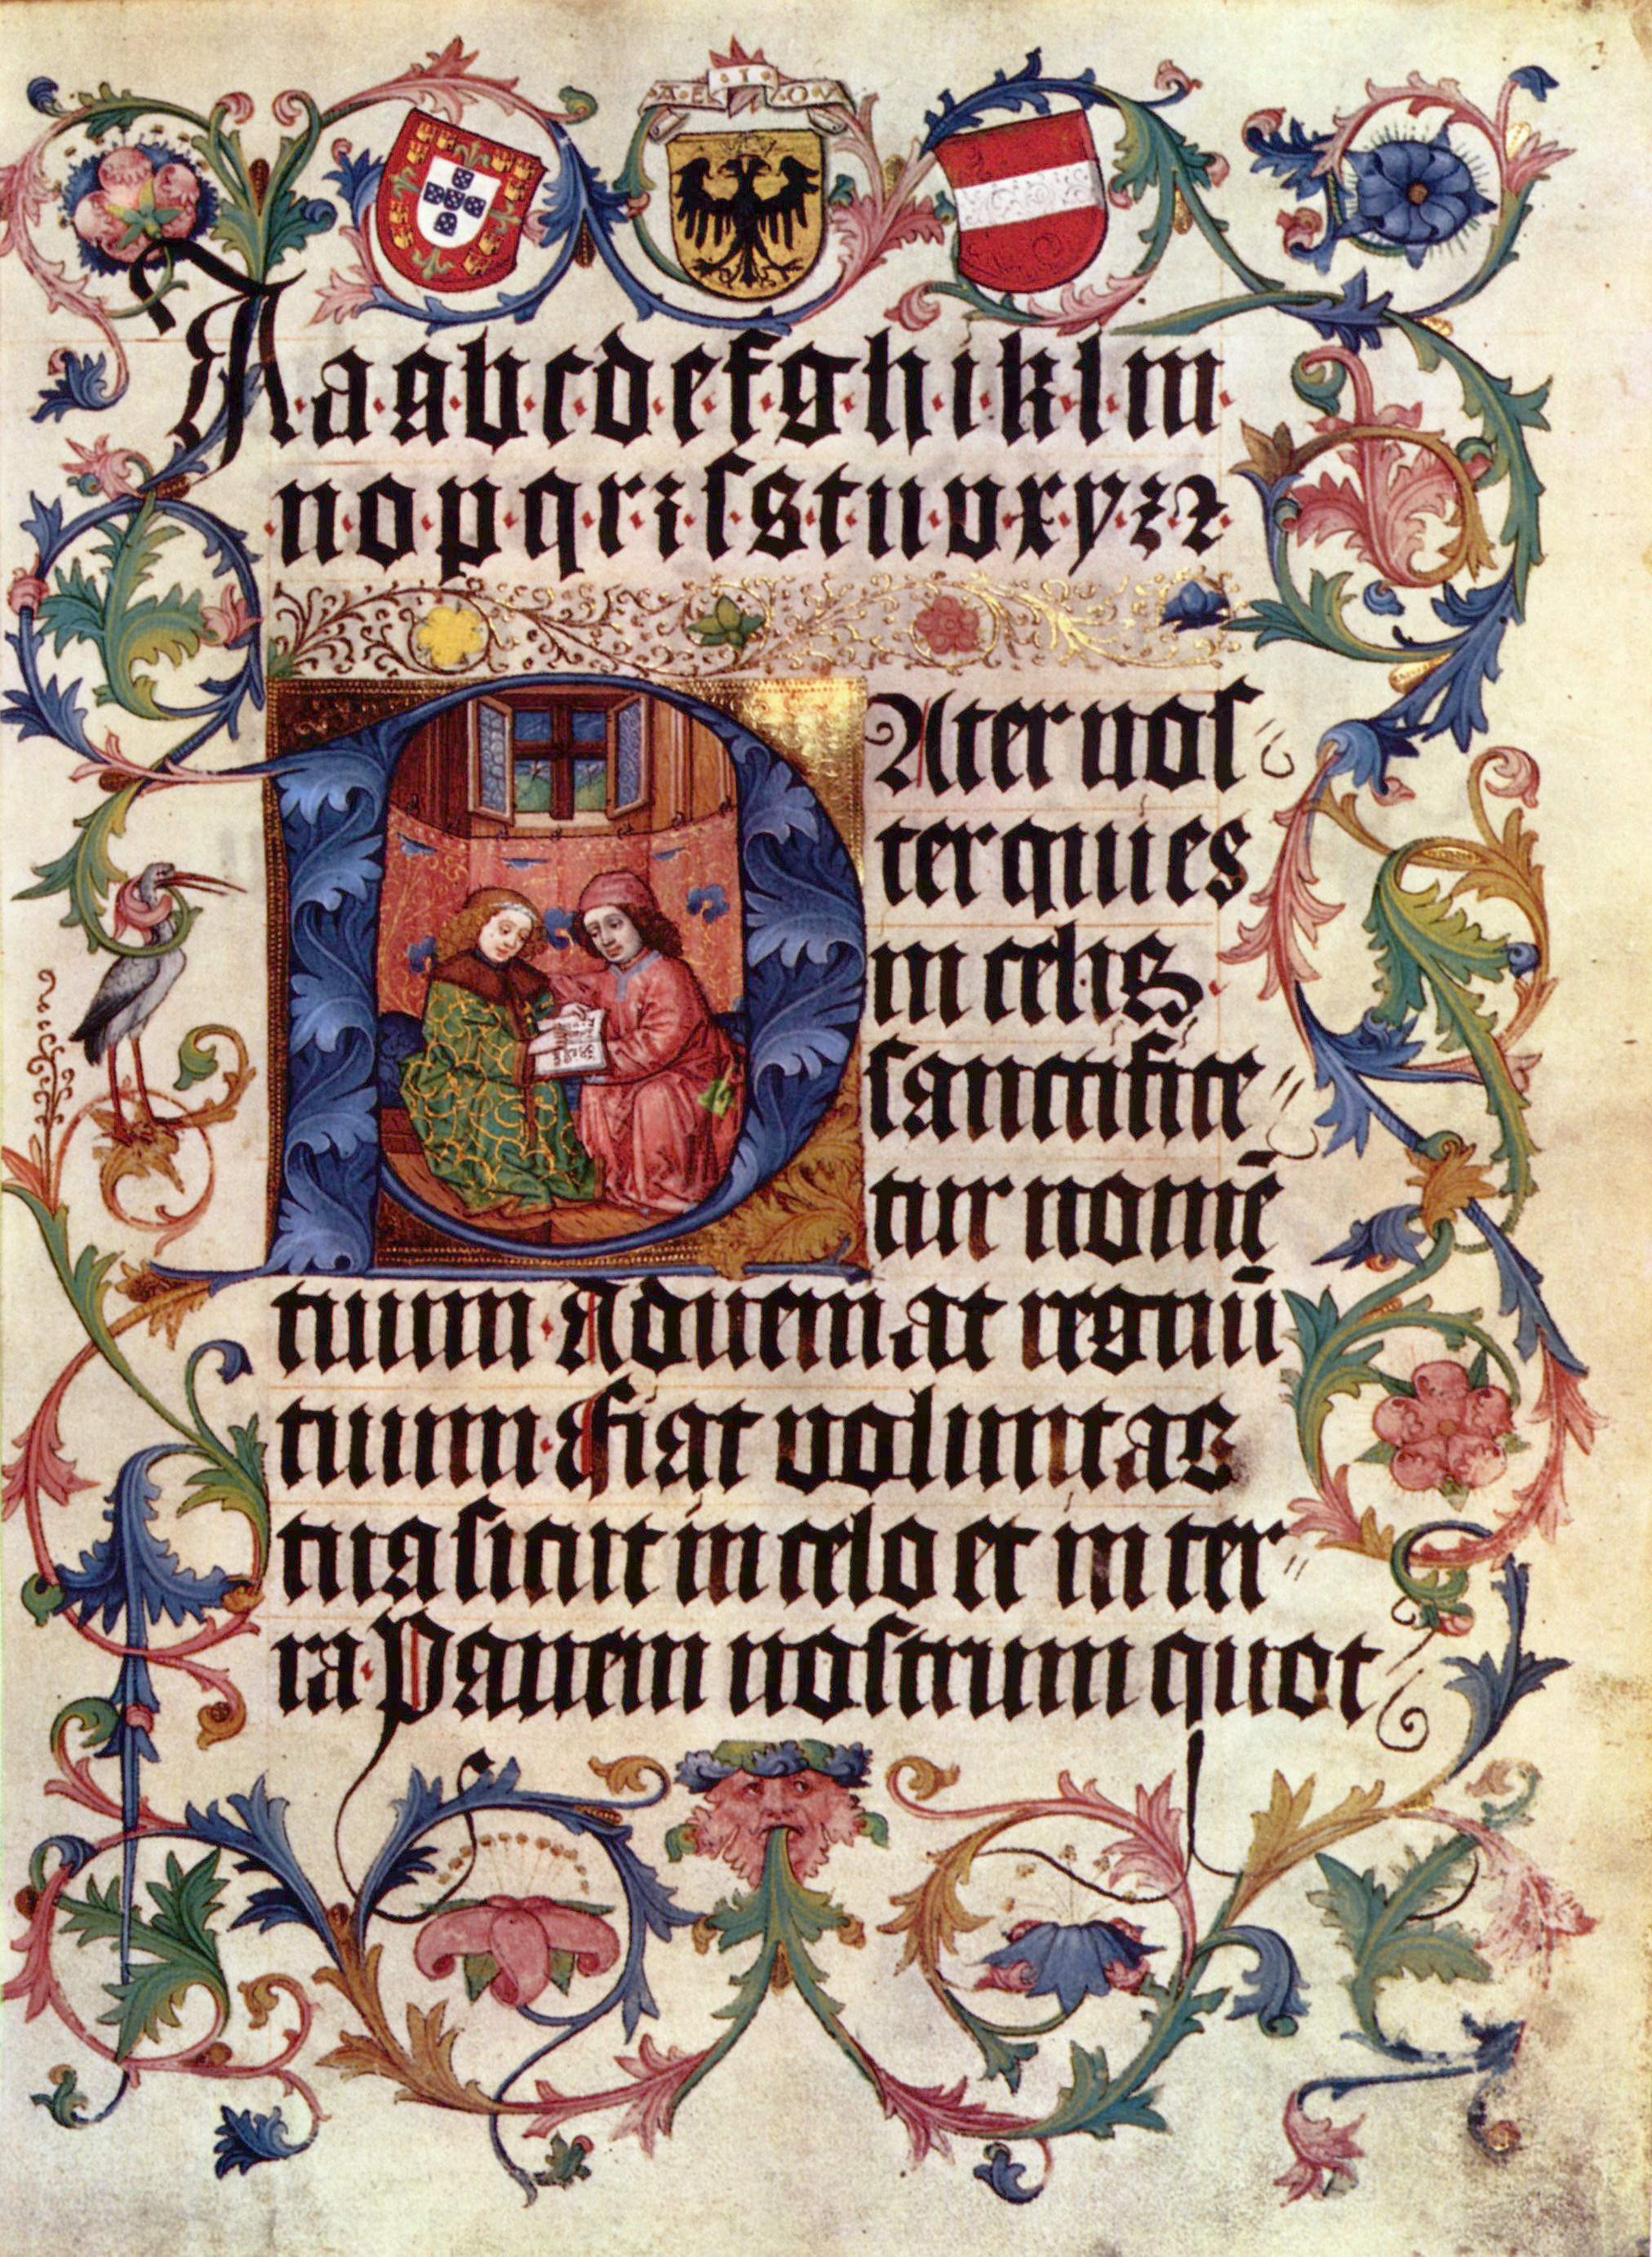 ·A·E·I·O·V·
A·a·a·b·c·d·e·f·g·h·i·k·l·m·
·n·o·p·q·r·ꝛ·ſ·s·t·u·v·x·y·z·ꝛ
PAter noſ⸗
ter qui es
in celis.
ſanctifice⸗
tur nomē
tuum·Adueniat regnū
tuum·Fiat voluntas
tua ſicut in celo et in ter⸗
ra·Panem noſtrum quot